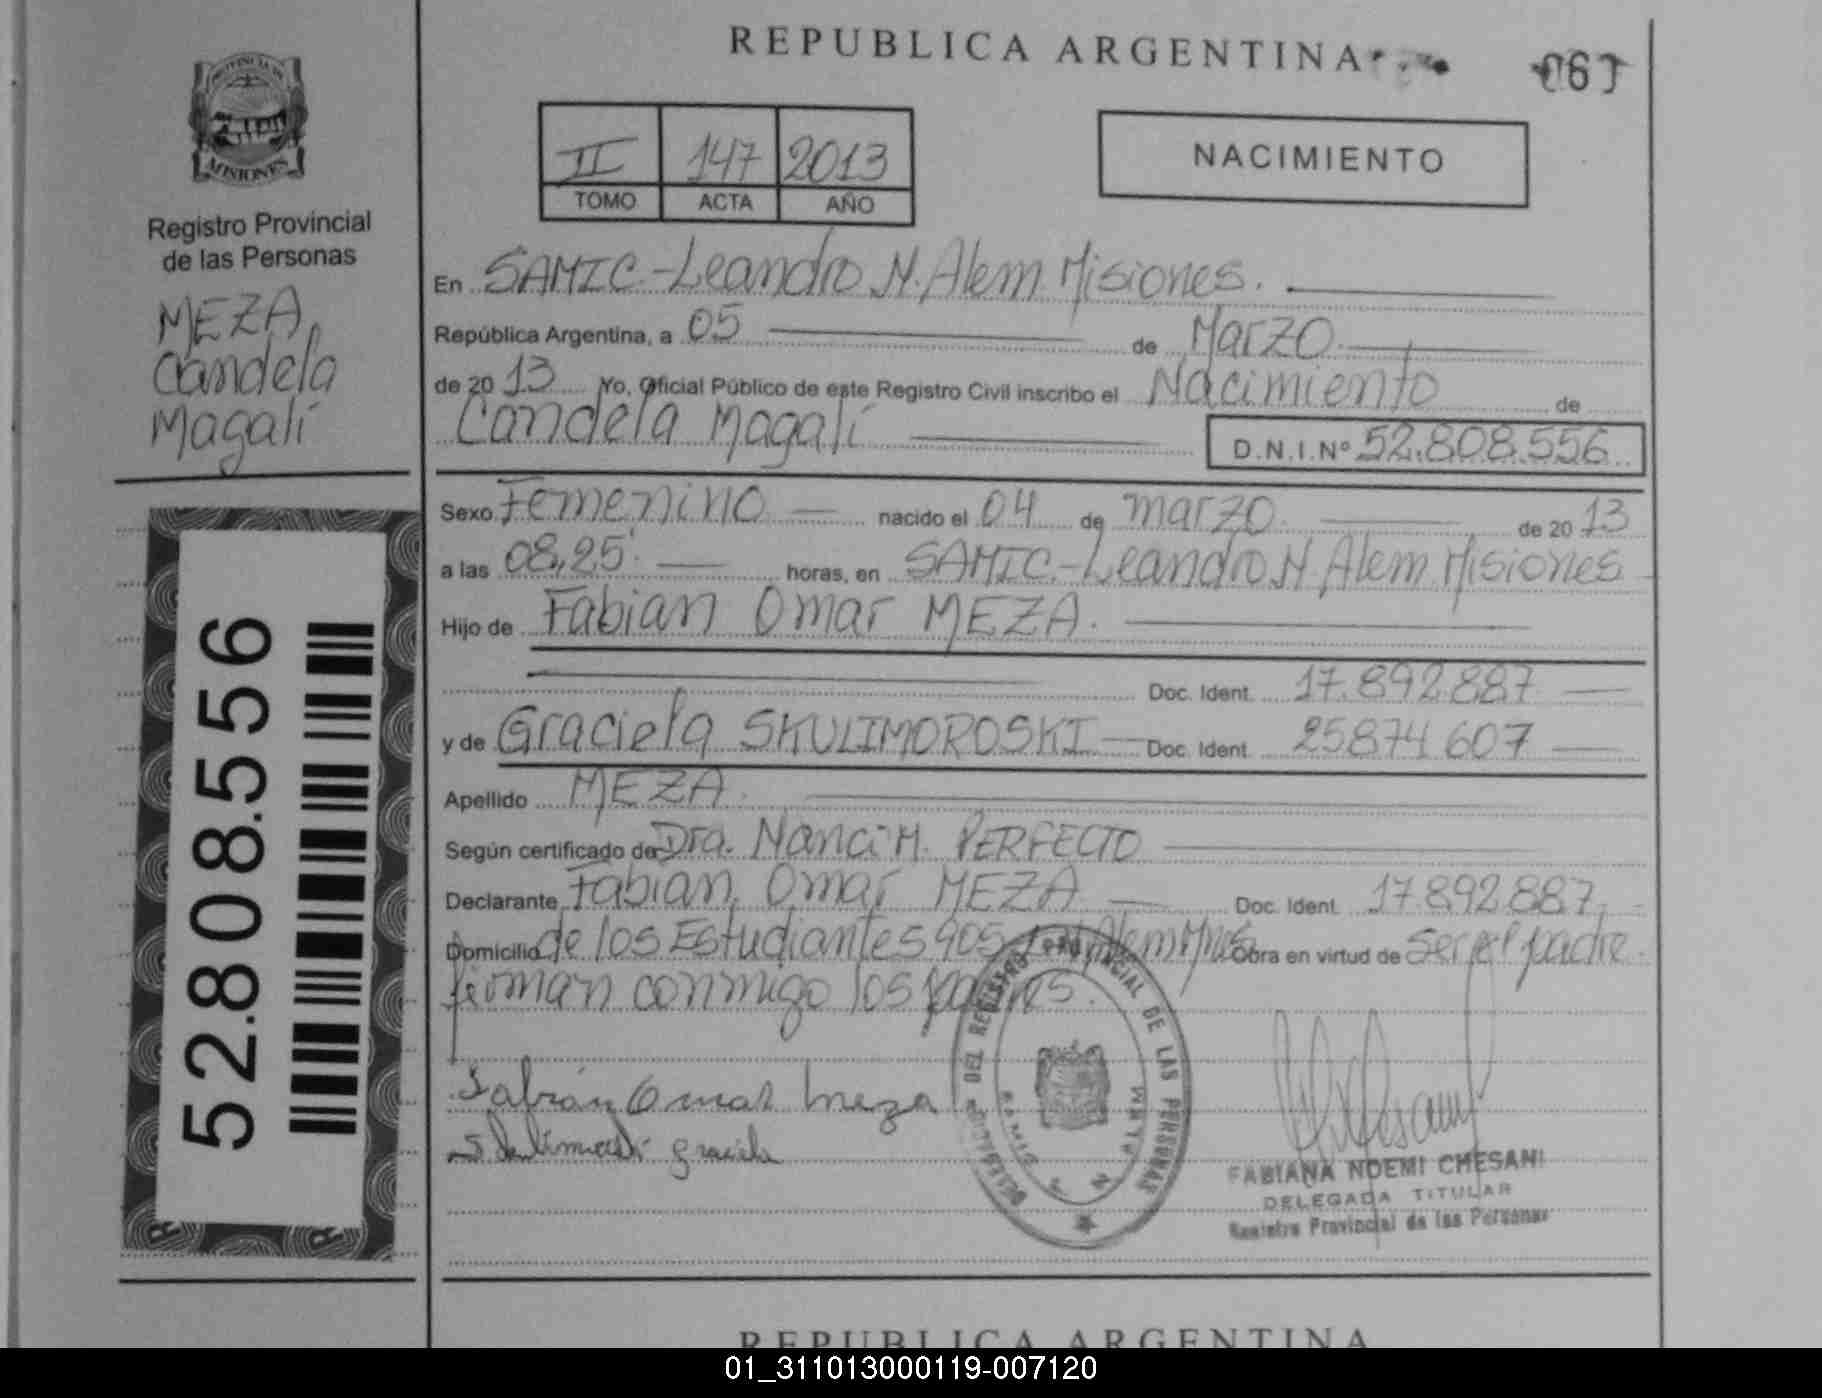 REPUBLICA ARGENTINA
PROVINCIA DE
MISIONES
Registro Provincial
de las Personas
MEZA
Candela
Magalí
52.808.556
II 147 2013
TOMO ACTA AÑO
NACIMIENTO
En SAMIC-Leandro N. Alem Misiones.
República Argentina, a 05 de Marzo
de 2013 Yo, Oficial Público de este Registro Civil inscribo el Nacimiento de
Candela Magalí D.N.I.Nº 52.808.556
Sexo Femenino nacido el 04 de marzo de 2013
a las 08,25 horas, en SAMIC-Leandro N. Alem Misiones
Hijo de Fabian Omar MEZA.
Doc. Ident. 17.892.887
y de Graciela SKULIMOROSKI Doc. Ident. 25874607
Apellido MEZA.
Según certificado de Dra. Nanci M. PERFECTO
Declarante Fabian Omar MEZA Doc. Ident. 17892887
Domicilio de los Estudiantes 905 Alem Mnes. Obra en virtud de ser el padre.
firman conmigo los padres.
Fabián Omar Meza
Graciela
DEL REGISTRO PROVINCIAL DE LAS PERSONAS
SAMIC
L N ALEM
FABIANA NOEMI CHESANI
DELEGADA TITULAR
Registro Provincial de las Personas
REPUBLICA ARGENTINA
01_311013000119-007120